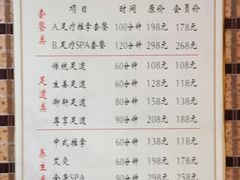 项目 时间 原价 会员价
套餐类
A.足疗推拿套餐 100分钟 198元 178元
B.足疗SPA套餐 120分钟 298元 268元
足道类
传统足道 60分钟 128元 108元
生姜足道 60分钟 138元 118元
御轩足道 80分钟 158元 138元
尊享足道 90分钟 208元 188元
养生类
中式推拿 60分钟 138元 118元
艾灸 60分钟 198元 178元
90分钟 298元 258元